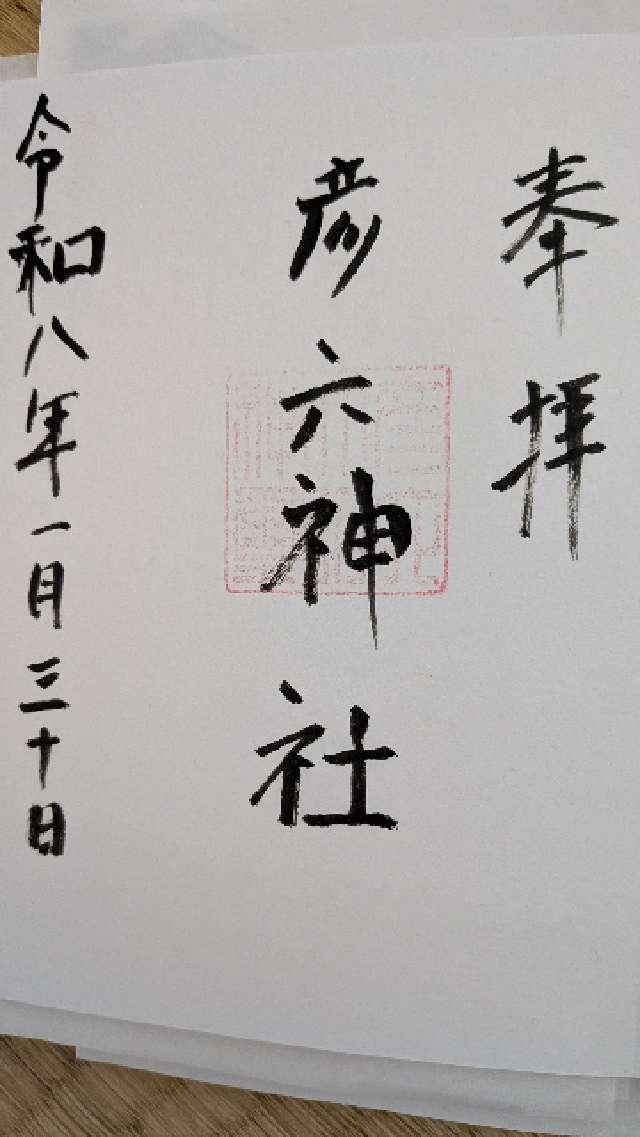 奉拝
彦六神社
令和八年一月三十日